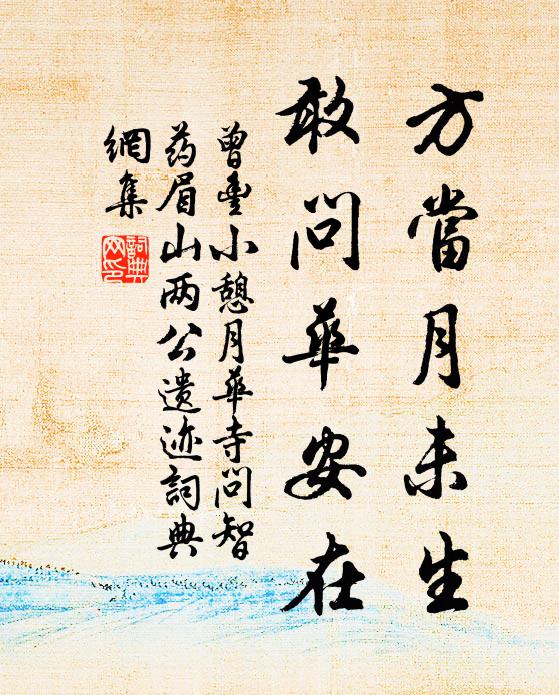 方當月未生
敢問華安在
曾豐小憩月華寺問智
药眉山两公遗迹詞典
網集
詞典網印